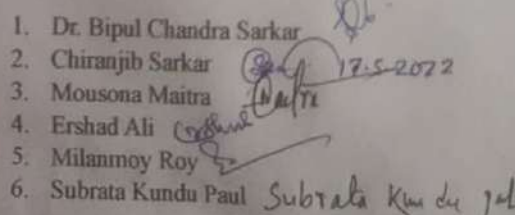 1. Dr. Bipul Chandra Sarkar
2. Chiranjib Sarkar 17.5.2022
3. Mousona Maitra
4. Ershad Ali
5. Milanmoy Roy
6. Subrata Kundu Paul Subrata Kundu